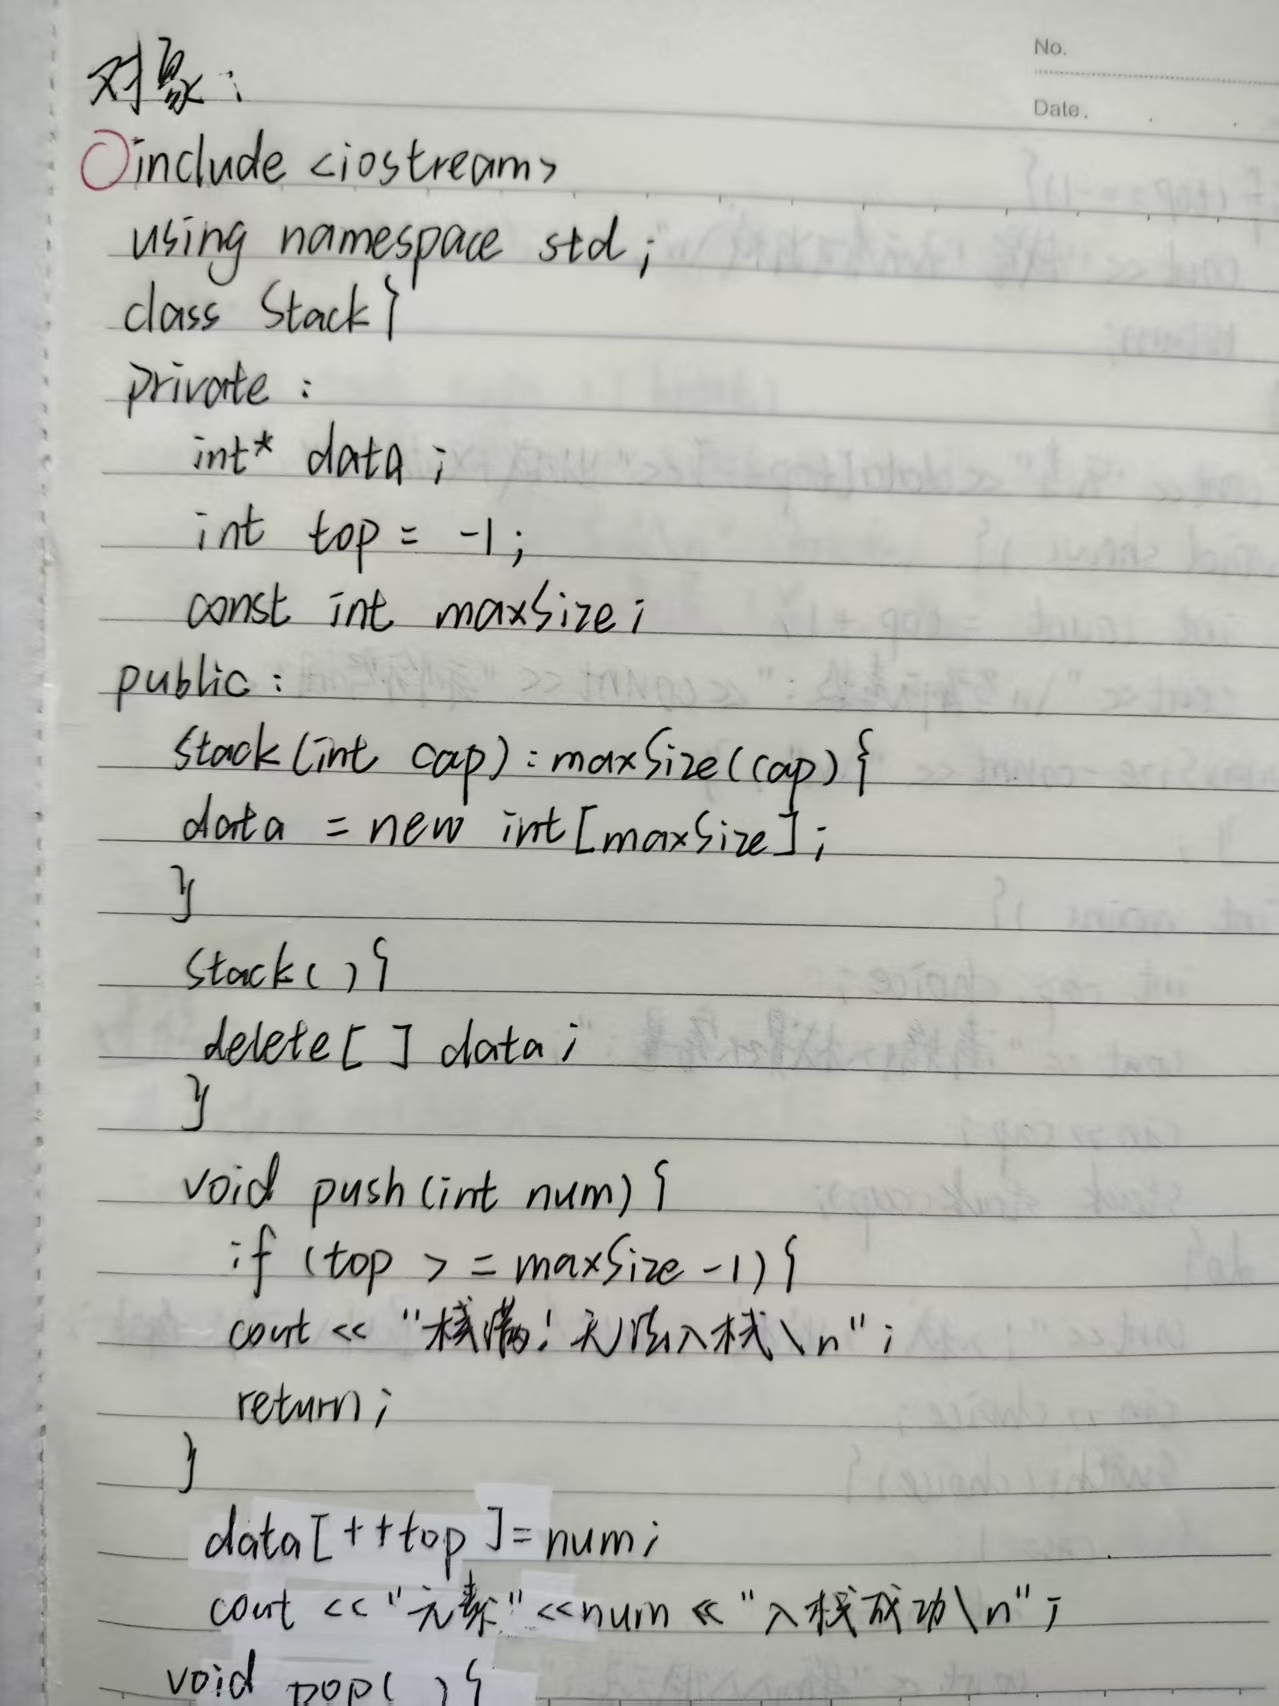 No.
Date.
对象:
include <iostream>
using namespace std;
class Stack}
private:
int* data;
int top = -1;
const int maxSize;
public:
Stack(int cap):maxSize(cap){
data = new int[maxSize];
}
Stack(){
delete[ ] data;
}
void push(int num){
if (top >= maxSize -1){
cout << "栈满!无法入栈\n";
return;
}
data[++top]=num;
cout <<"元素"<<num << "入栈成功\n";
void pop( ){